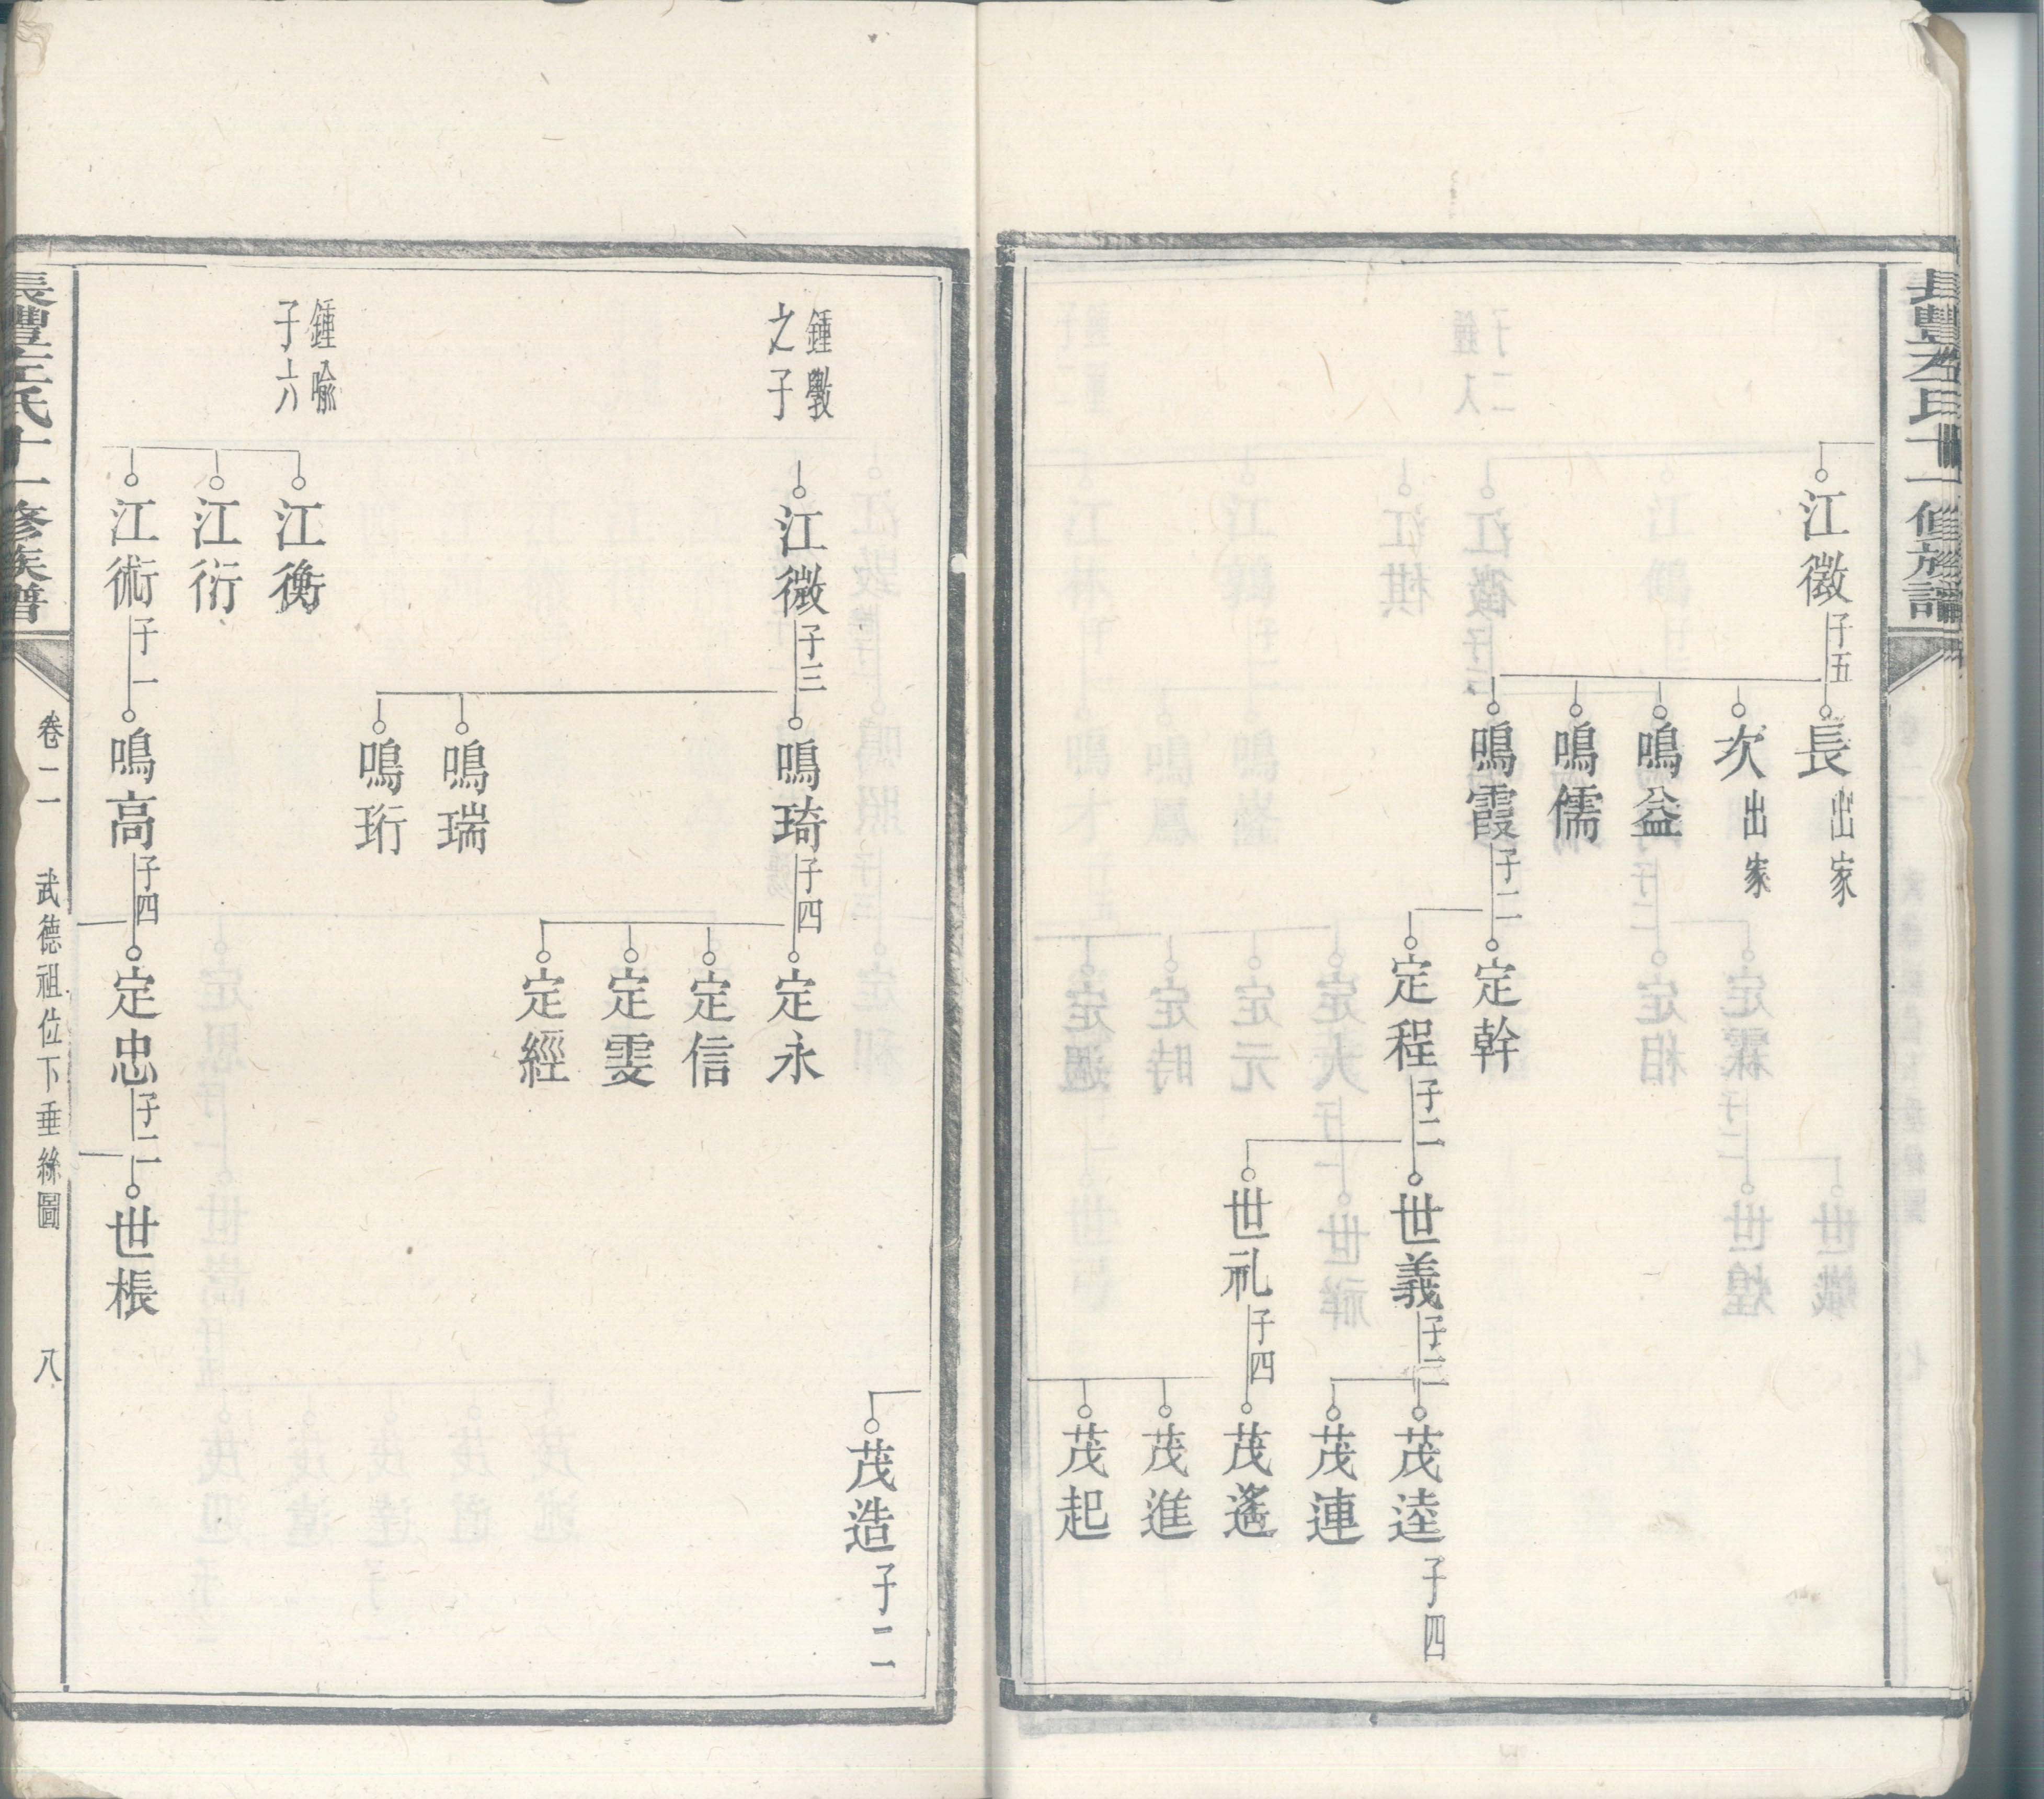 長豐左氏十一修族譜
江徽 子五
長 出家
次 出家
鳴益
鳴儒
鳴霞 子二
定幹
定程 子二
世義 子二
世礼 子四
茂逵 子四
茂連
茂遙
茂進
茂起
茂造 子二
鍾斅
之子
江微 子三
鳴琦 子四
鳴瑞
鳴珩
定永
定信
定雯
定經
鍾喻
子六
江衡
江衍
江術 子一
鳴高 子四
定忠 子二
世棖
長豐左氏十一修族譜
卷二 武德祖位下垂絲圖 八